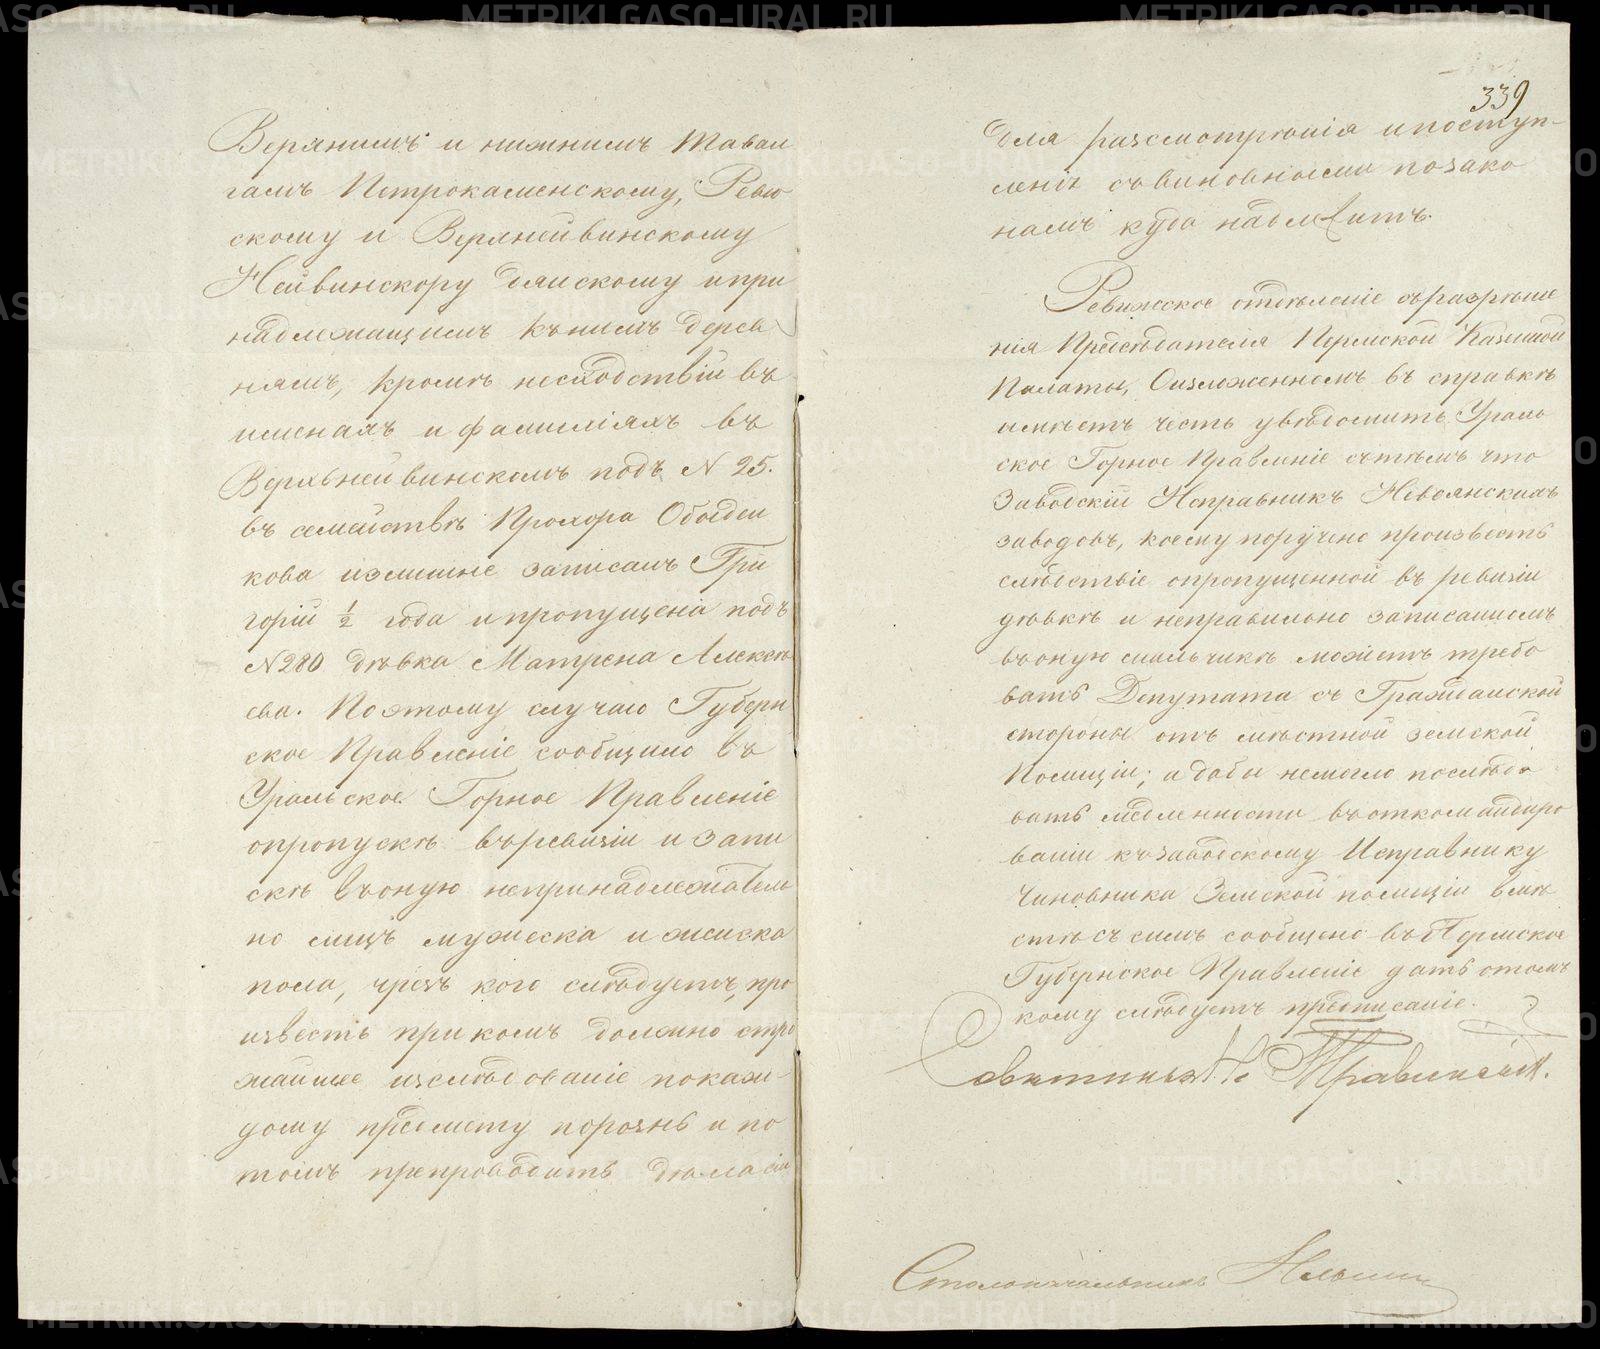 Верхнимъ и нижнимъ Тавол
гамъ Петрокаменскому, Ревю
скому и Верхнейвинскому
Нейвинскору
надлежащимъ къ нимъ дерев
нямъ, кромѣ несходствій въ
именахъ и фамиліяхъ въ
Верхнейвинскомъ подъ N 25.
въ семействѣ Прохора
кова излишне записанъ Гри
горій ½ года и пропущена подъ
N 280 дѣвка Матрена Алексѣ
ева. По этому случаю Губерн
ское Правленіе сообщило въ
Уральское Горное Правленіе
опропускѣ въ ревизіи и запи
скѣ въ оную непринадлежатель
но лицъ мужеска и женска
пола, чрезъ кого слѣдуетъ, про
известь при комъ должно стро
жайшее изслѣдованіе покаж-
дому предмету порознь и по
томъ препроводить дѣла сіи
339
для разсмотренія и поступ-
ленія съ виновными по зако
намъ куда надлежитъ.
Ревижское отдѣленіе съ разрѣше
нія Предсѣдателя Пермской Казенной
Палаты, О изложенномъ въ справкѣ
имѣетъ честь увѣдомить Ураль
ское Горное Правленіе съ тѣмъ что
Заводскій Исправникъ Невьянскихъ
заводовъ, коему поручено произвесть
слѣдствіе опропущенной въ ревизіи
дѣвкѣ и неправильно записанномъ
въ оную мальчикѣ можетъ требо
вать Депутата съ Гражданской
стороны отъ мѣстной земской
Полиціи; а дабы немогло послѣдо
вать медленности въ откомандиро
ваніи къ заводскому Исправнику
Чиновника Земской полиціи вмѣ
стѣ съ симъ сообщено въ Пермское
Губернское Правленіе дать о томъ
кому слѣдуетъ предписаніе.
Совѣтникъ
Столоначальникъ